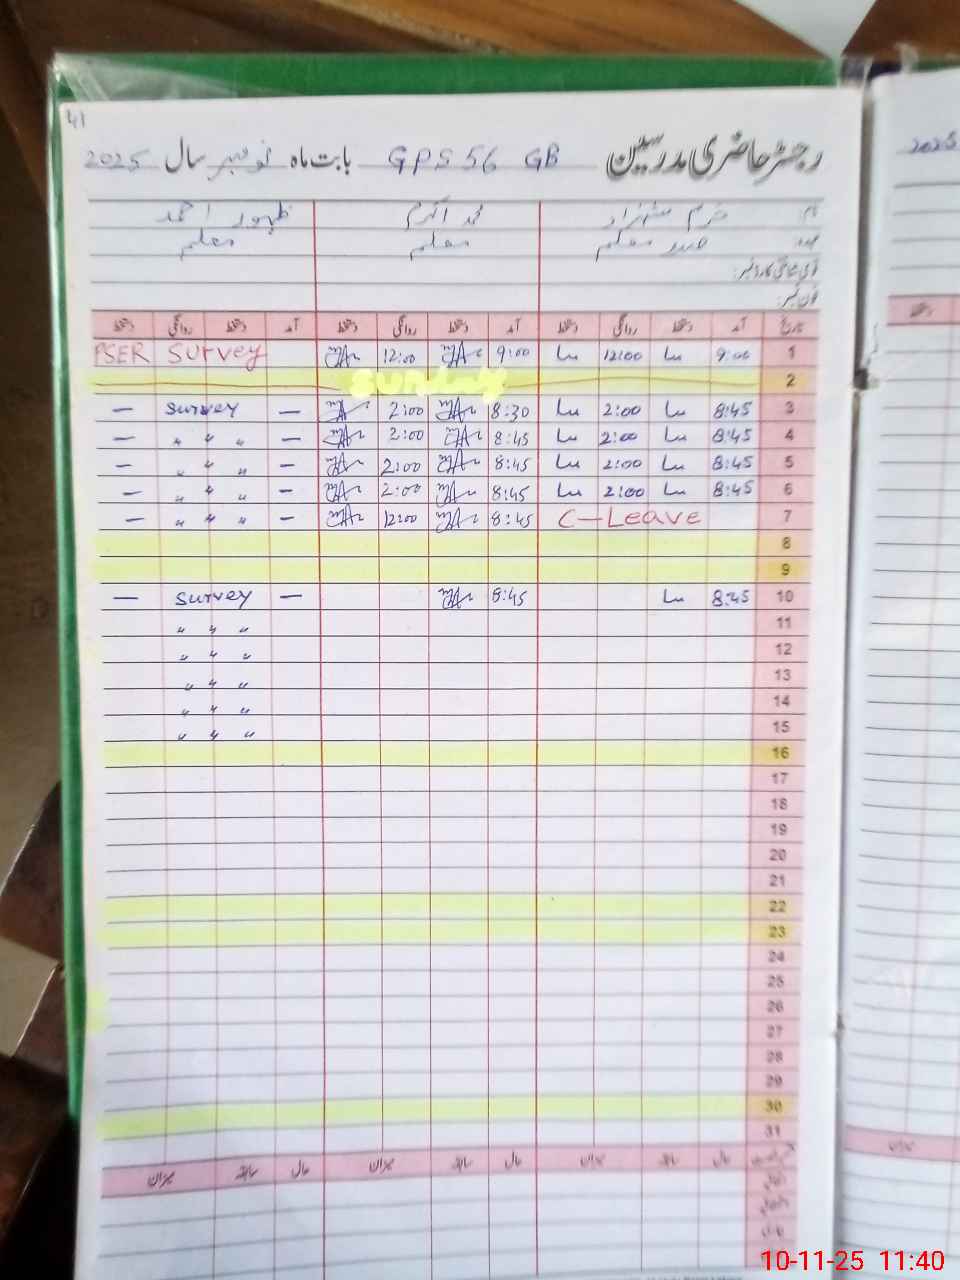 41
رجسٹر حاضری مدرسین GPS 56 GB بابت ماہ نومبر سال 2025
2025
نام: خرم شہزاد محمد اکرم ظہور احمد
عہدہ: صدر معلم معلم معلم
قومی شناختی کارڈ نمبر:
فون نمبر:
تاریخ آمد دستخط روانگی دستخط آمد دستخط روانگی دستخط آمد دستخط روانگی دستخط
1 9:00 12:00 9:00 12:00 PSER Survey
2 Sunday
3 8:45 2:00 8:30 2:00 — Survey —
4 8:45 2:00 8:45 2:00 — " " " —
5 8:45 2:00 8:45 2:00 — " " " —
6 8:45 2:00 8:45 2:00 — " " " —
7 C-Leave 8:45 12:00 — " " " —
8
9
10 8:45 8:45 — Survey —
11 " " "
12 " " "
13 " " "
14 " " "
15 " " "
16
17
18
19
20
21
22
23
24
25
26
27
28
29
30
31
حال سابقہ میزان حال سابقہ میزان حال سابقہ میزان
10-11-25 11:40